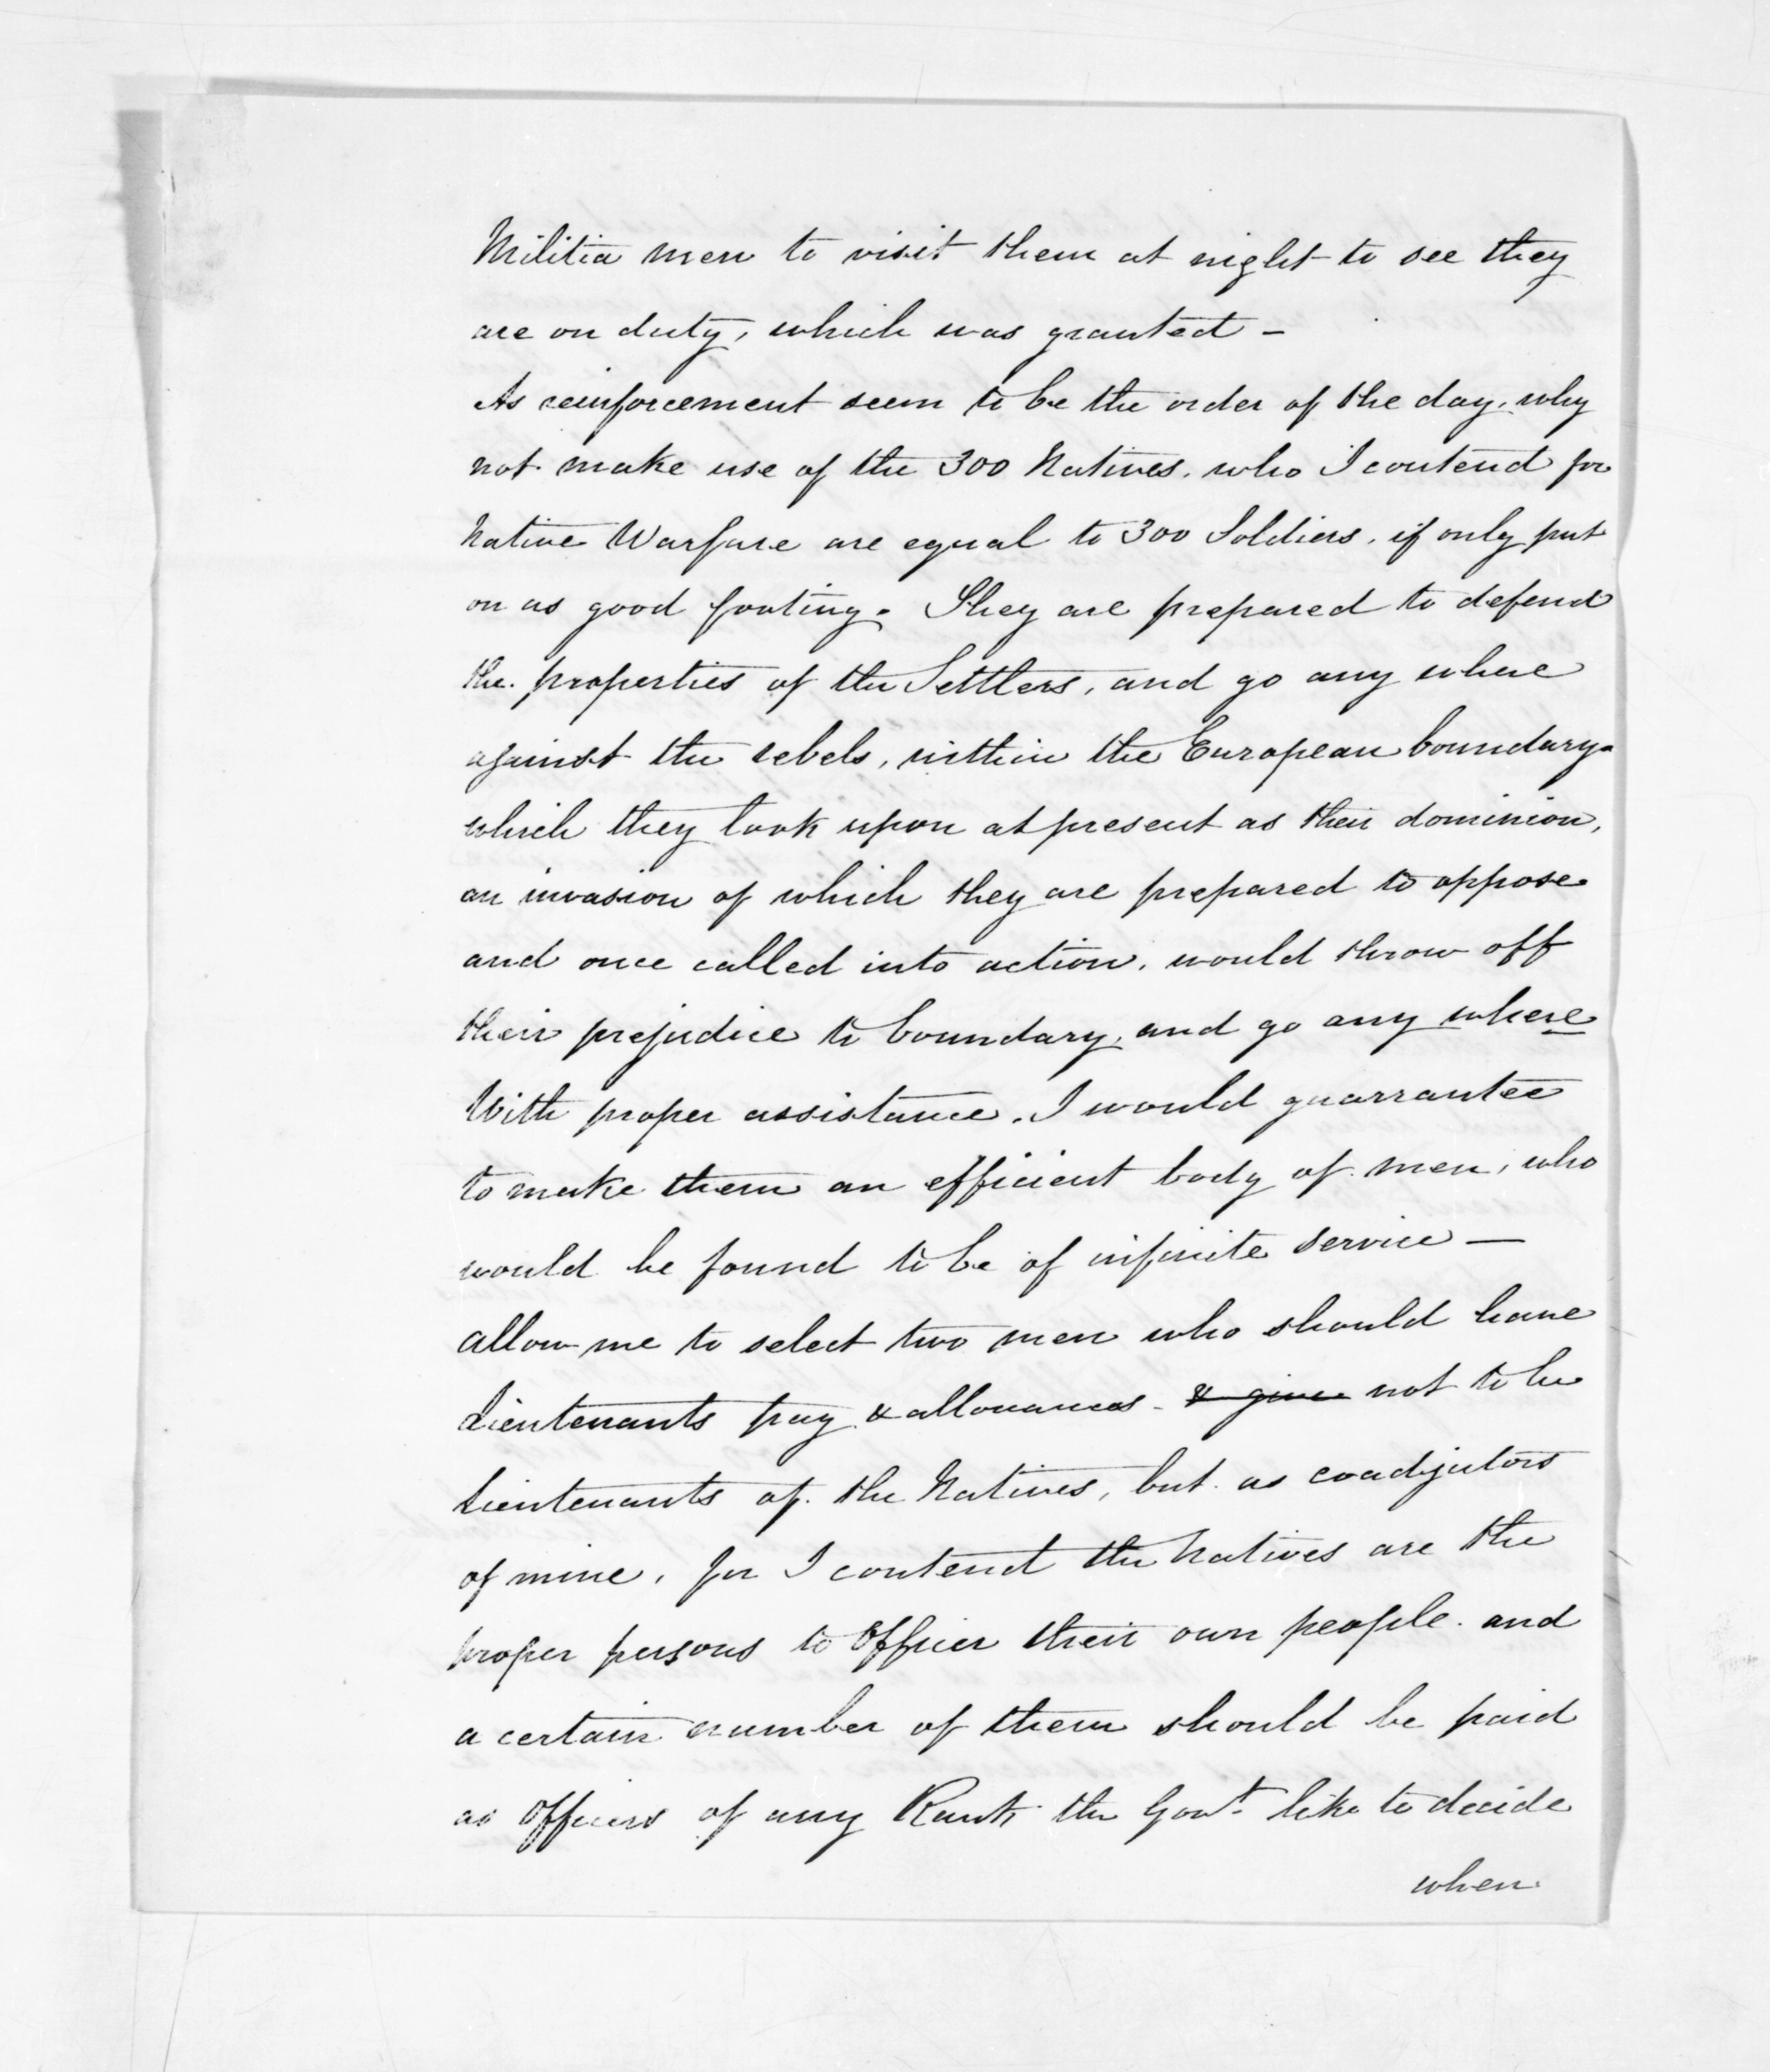 Militia men to visit them at night to see they
are on duty, which was granted -
As reinforcement seem to be the order of the day, why
not make use of the 300 Natives, who I contend for
Native Warfare are equal to 300 Soldiers, if only put
on as good footing. They are prepared to defend
the properties of the Settlers, and go any where
against the rebels, within the European boundary.
which they look upon at present as their dominion,
an invasion of which they are prepared to oppose
and once called into action, would throw off
their prejudice to boundary, and go any where
With proper assistance, I would guarrantee
to make them an efficient body of men, who
would be found to be of infinite service —
allow me to select two men who should have
Lieutenants pay & allowances - & give not to be
Lieutenants of the Natives, but as coadjutors
of mine, for I contend the Natives are the
proper persons to Officer their own people. and
a certain number of them should be paid
as Officers of any Rank the Govt. like to decide
when